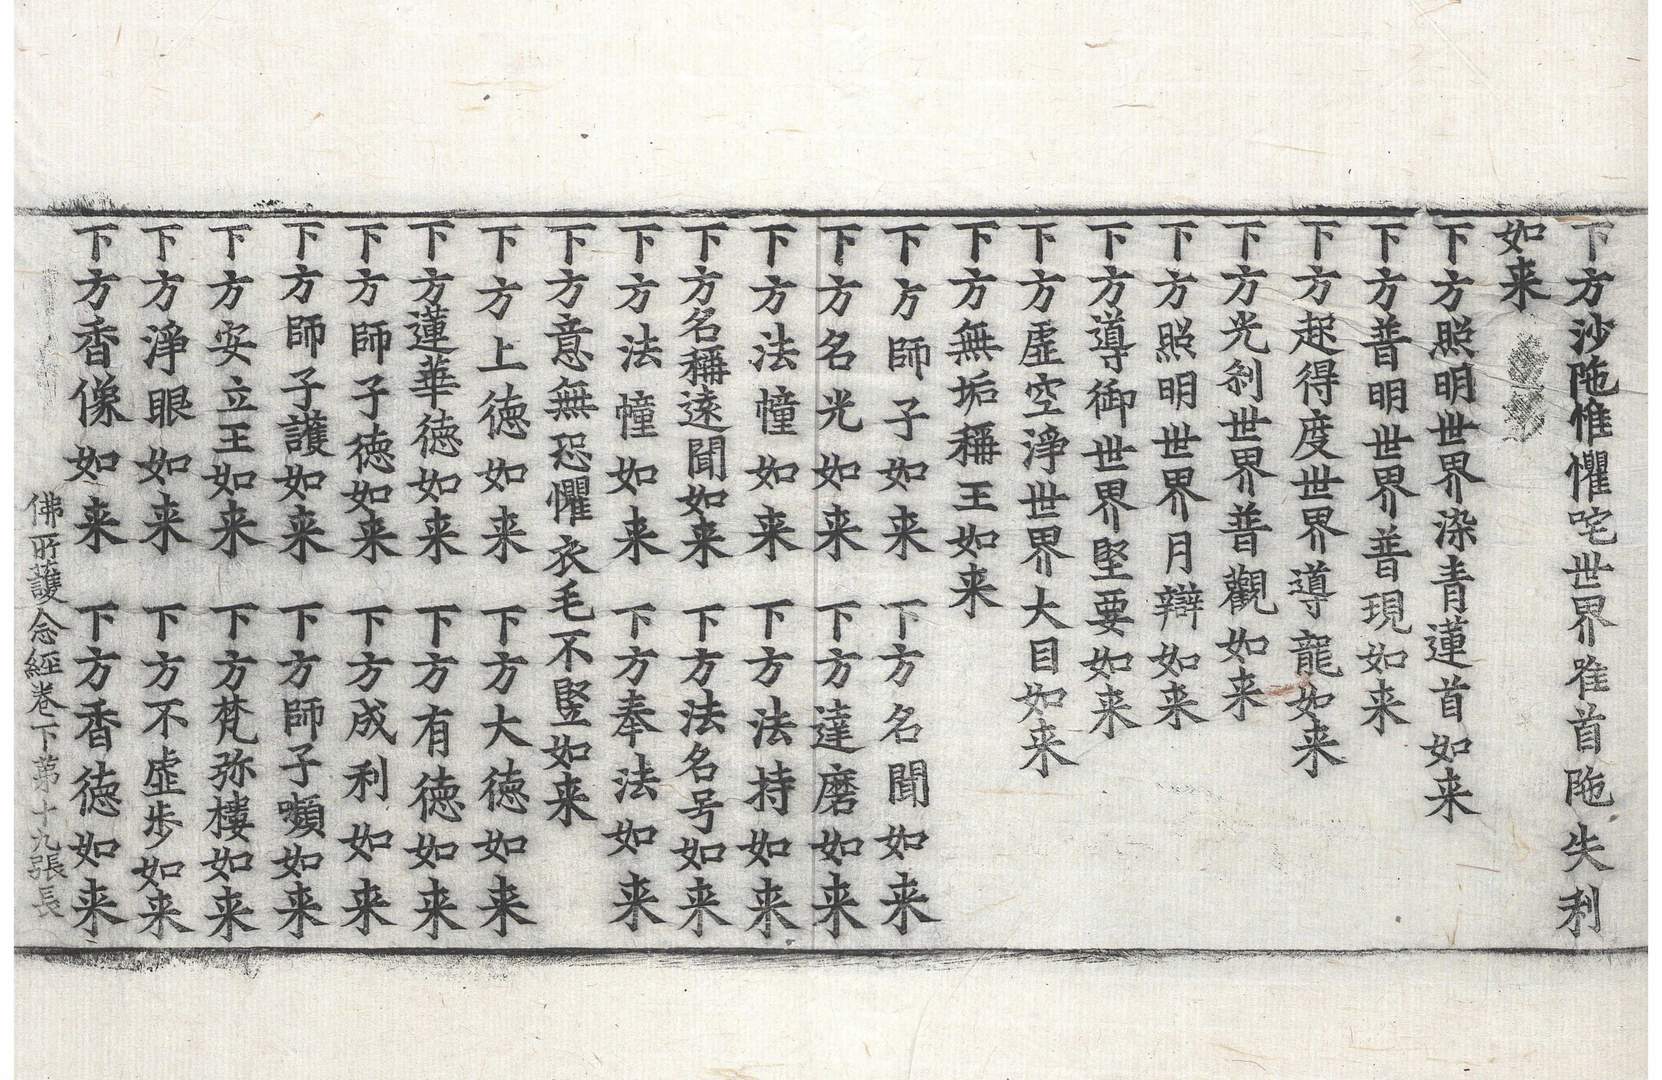 下方沙陁惟懼咤世界唯首陁失利
如来
下方照明世界染青蓮首如来
下方普明世界普現如来
下方起得度世界導龍如来
下方光刹世界普觀如来
下方照明世界月辯如来
下方導御世界堅要如来
下方虛空淨世界大目如来
下方無垢稱王如来
下方師子如来　下方名聞如来
下方名光如来　下方達磨如来
下方法幢如来　下方法持如来
下方名稱遠聞如来　下方法名号如来
下方法幢如来　下方奉法如来
下方意無恐懼衣毛不竪如来
下方上德如来　下方大德如来
下方蓮華德如来　下方有德如来
下方師子德如来　下方成利如来
下方師子護如来　下方師子嚬如来
下方安立王如来　下方梵弥樓如来
下方淨眼如来　下方不虛步如来
下方香像如来　下方香德如来
佛所護念經卷下第十九張長